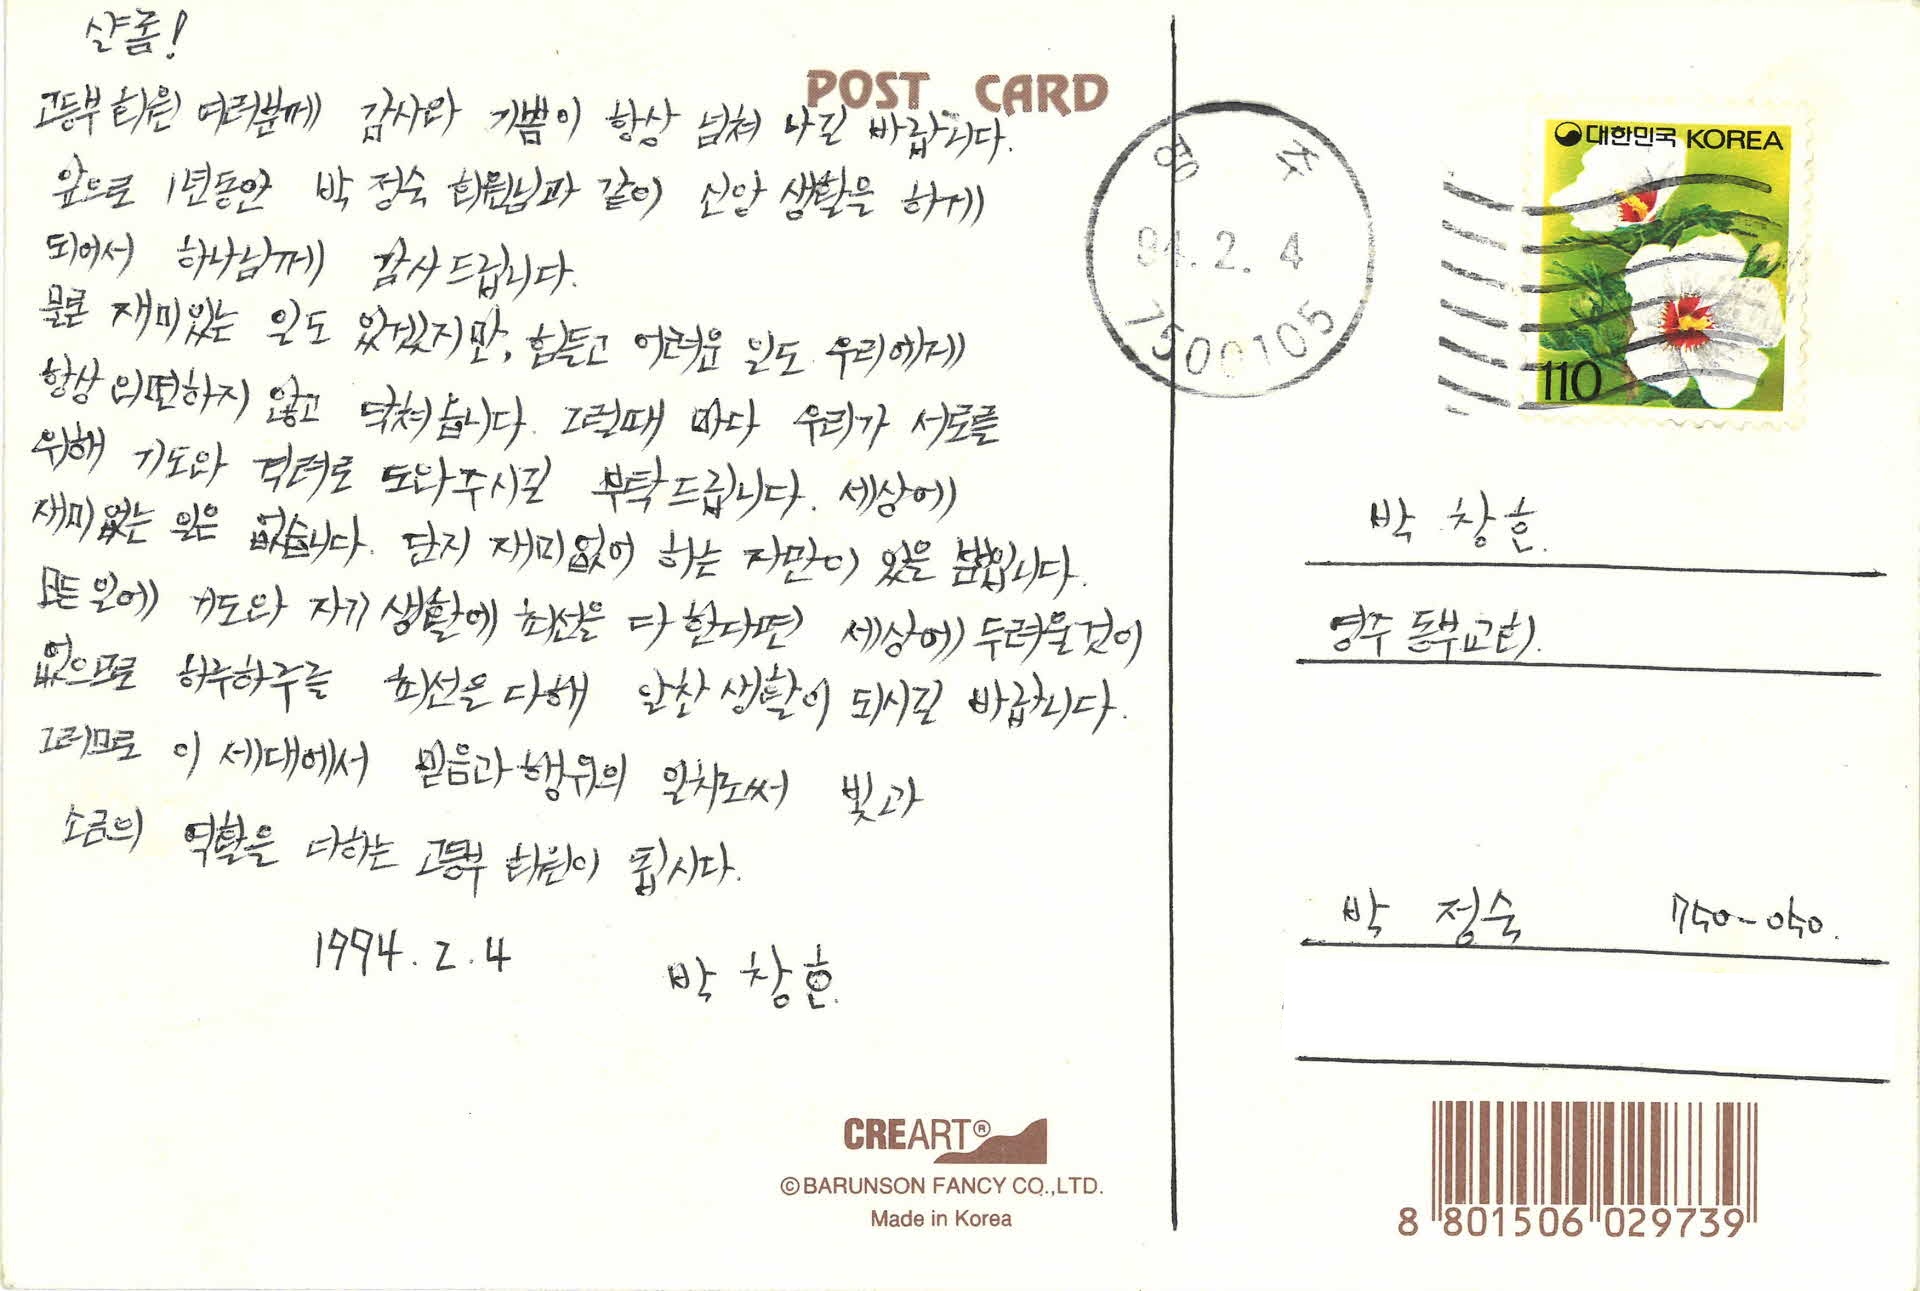 샬롬!
POST CARD
고등부 회원 여러분께 감사와 기쁨이 항상 넘쳐 나길 바랍니다.
앞으로 1년동안 박 정숙 회원님과 같이 신앙 생활을 하게
되어서 하나님께 감사드립니다.
물론 재미있는 일도 있겠지만, 힘들고 어려운 일도 우리에게
항상 외면하지 않고 닥쳐옵니다. 그럴때 마다 우리가 서로를
위해 기도와 격려로 도와주시길 부탁드립니다. 세상에
재미없는 일은 없습니다. 단지 재미없어 하는 자만이 있을 뿐입니다.
모든일에 기도와 자기생활에 최선을 다한다면 세상에 두려울것이
없으므로 하루하루를 최선을 다해 알찬 생활이 되시길 바랍니다.
그러므로 이 세대에서 믿음과 행위의 일치로써 빛과
소금의 역할을 다하는 고등부 회원이 됩시다.
1994. 2. 4 박 창훈.
CREART®
©BARUNSON FANCY CO.,LTD.
Made in Korea
영 주
94. 2. 4
7500105
대한민국 KOREA
110
박 창훈.
영주 동부교회.
박 정숙 750-050.
8 801506 029739